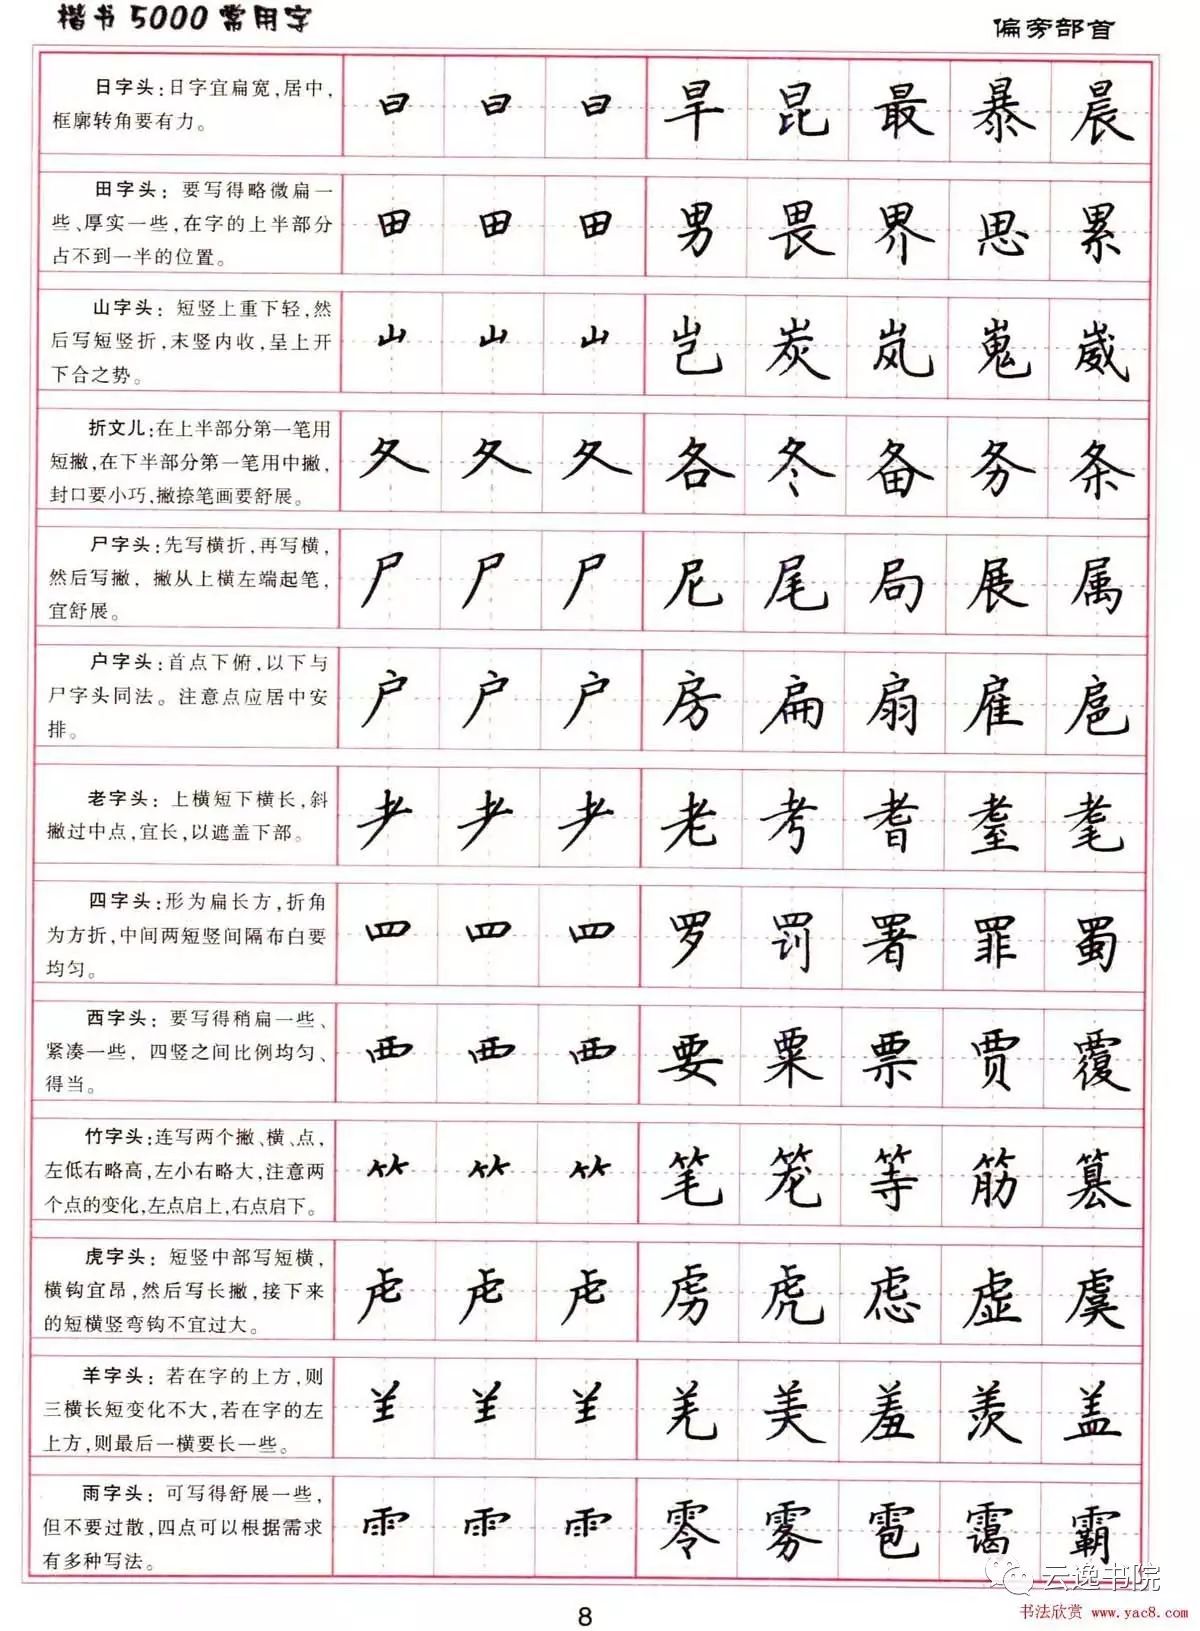 楷书5000常用字
偏旁部首
日字头：日字宜扁宽，居中，
框廓转角要有力。
日 日 日 旱 昆 最 暴 晨
田字头：要写得略微扁一
些、厚实一些，在字的上半部分
占不到一半的位置。
田 田 田 男 畏 界 思 累
山字头：短竖上重下轻，然
后写短竖折，末竖内收，呈上开
下合之势。
山 山 山 岂 炭 岚 嵬 崴
折文儿：在上半部分第一笔用
短撇，在下半部分第一笔用中撇，
封口要小巧，撇捺笔画要舒展。
夂 夂 夂 各 冬 备 务 条
尸字头：先写横折，再写横，
然后写撇，撇从上横左端起笔，
宜舒展。
尸 尸 尸 尼 尾 局 展 属
户字头：首点下俯，以下与
尸字头同法。注意点应居中安
排。
户 户 户 房 扁 扇 雇 扈
老字头：上横短下横长，斜
撇过中点，宜长，以遮盖下部。
耂 耂 耂 老 考 耆 耋 耄
四字头：形为扁长方，折角
为方折，中间两短竖间隔布白要
均匀。
罒 罒 罒 罗 罚 署 罪 蜀
西字头：要写得稍扁一些、
紧凑一些，四竖之间比例均匀、
得当。
覀 覀 覀 要 粟 票 贾 覆
竹字头：连写两个撇、横、点，
左低右略高，左小右略大，注意两
个点的变化，左点启上，右点启下。
⺮ ⺮ ⺮ 笔 笼 等 筋 篡
虎字头：短竖中部写短横，
横钩宜昂，然后写长撇，接下来
的短横竖弯钩不宜过大。
虍 虍 虍 虏 虎 虑 虚 虞
羊字头：若在字的上方，则
三横长短变化不大，若在字的左
上方，则最后一横要长一些。
⺷ ⺷ ⺷ 羌 美 羞 羡 盖
雨字头：可写得舒展一些，
但不要过散，四点可以根据需求
有多种写法。
⻗ ⻗ ⻗ 零 雾 雹 霭 霸
云逸书院
书法欣赏 www.yac8.com
8